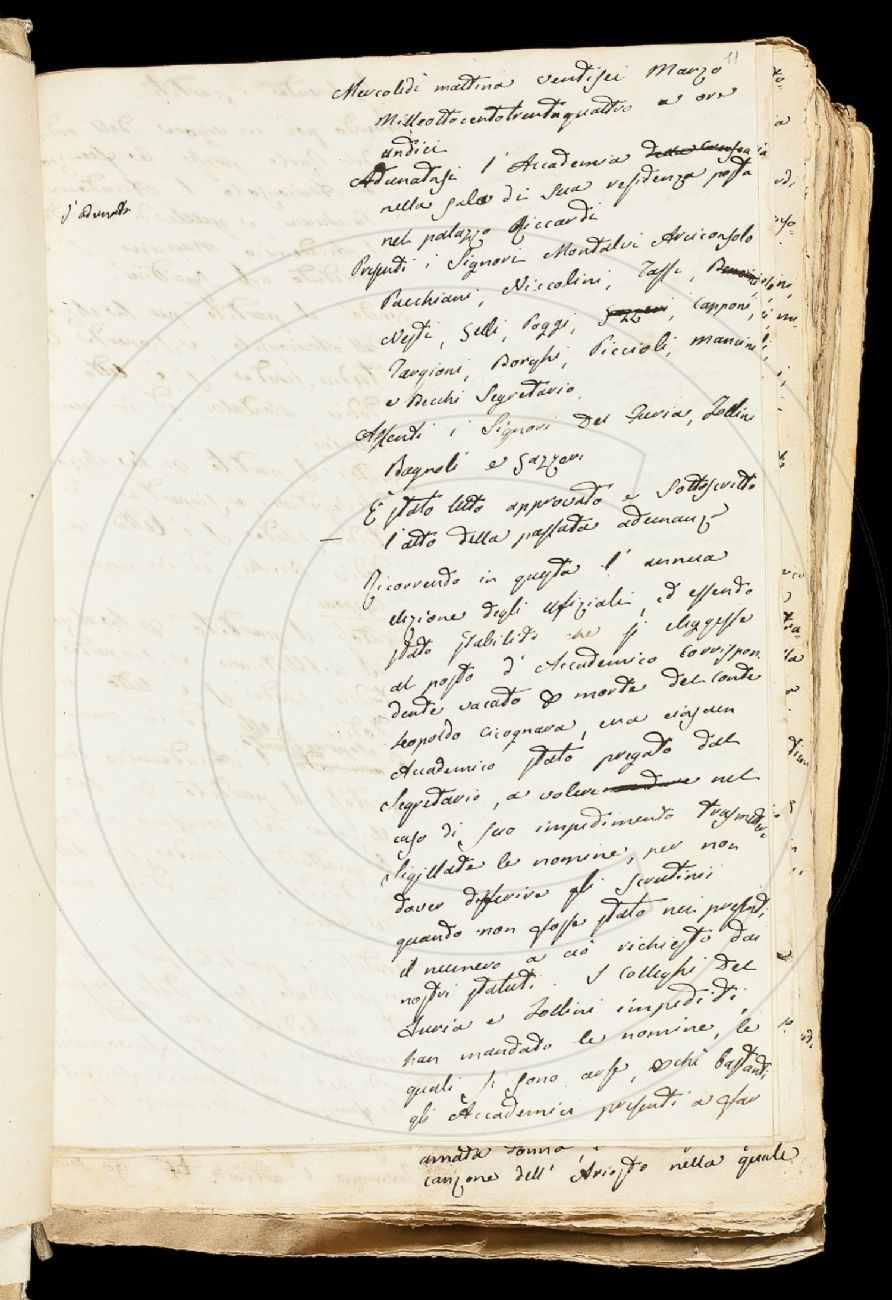 11
Mercoledì mattina ventisei Marzo
Milleottocentotrentaquattro a ore
undici
Adunatasi l'Accademia della Crusca
nella sala di sua residenza posta
nel palazzo Riccardi
I Adunata
Presenti i Signori Montalvi Arciconsolo
Pacchiani, Niccolini, Tassi,
Nesti, Gelli, Poggi, Gazzeri, Capponi,
Targioni, Borghi, Piccioli, Mancini
e Becchi Segretario.
Assenti i Signori Del Furia, Zollini
Bagnoli e Gazzeri
È stato letto approvato e sottoscritto
l'atto della passata adunanza
Ricorrendo in questa l'annua
elezione degli ufiziali, ed essendo
stato stabilito che si eleggesse
al posto d'Accademico Corrispon
dente vacato per morte del Conte
Leopoldo Cicognara, era ciascun
Accademico stato pregato dal
Segretario, a volere mandare nel
caso di suo impedimento trasmetter
sigillate le nomine, per non
dover differire gli scrutinii
quando non fosse stato nei presenti
il numero a ciò richiesto dai
nostri statuti. I Colleghi Del
Furia e Zollini impediti,
han mandato le nomine, le
quali si sono arse, perchè bastanti
gli Accademici presenti a far
amata donna
canzone dell'Ariosto nella quale